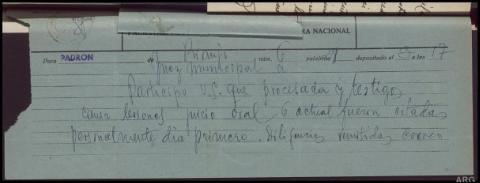 RA NACIONAL
Para PADRON de Rianjo núm. 6 palabras depositado el 5 a las 17
Juez municipal a
Participo V.S. que procesada y testigos
causa lesiones juicio oral 6 actual fueron citadas
personalmente día primero. Diligencias remitidas correo
ARG